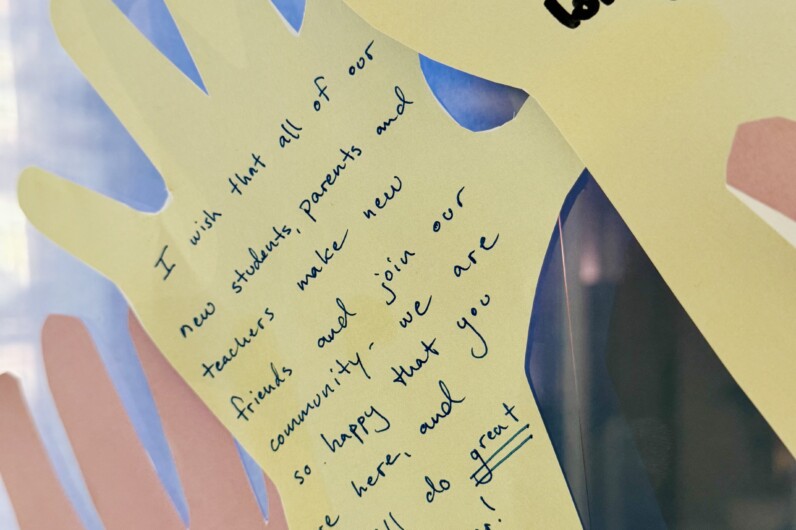 I wish that all of our
new students, parents and
teachers make new
friends and join our
community - we are
so happy that you
here, and
do great